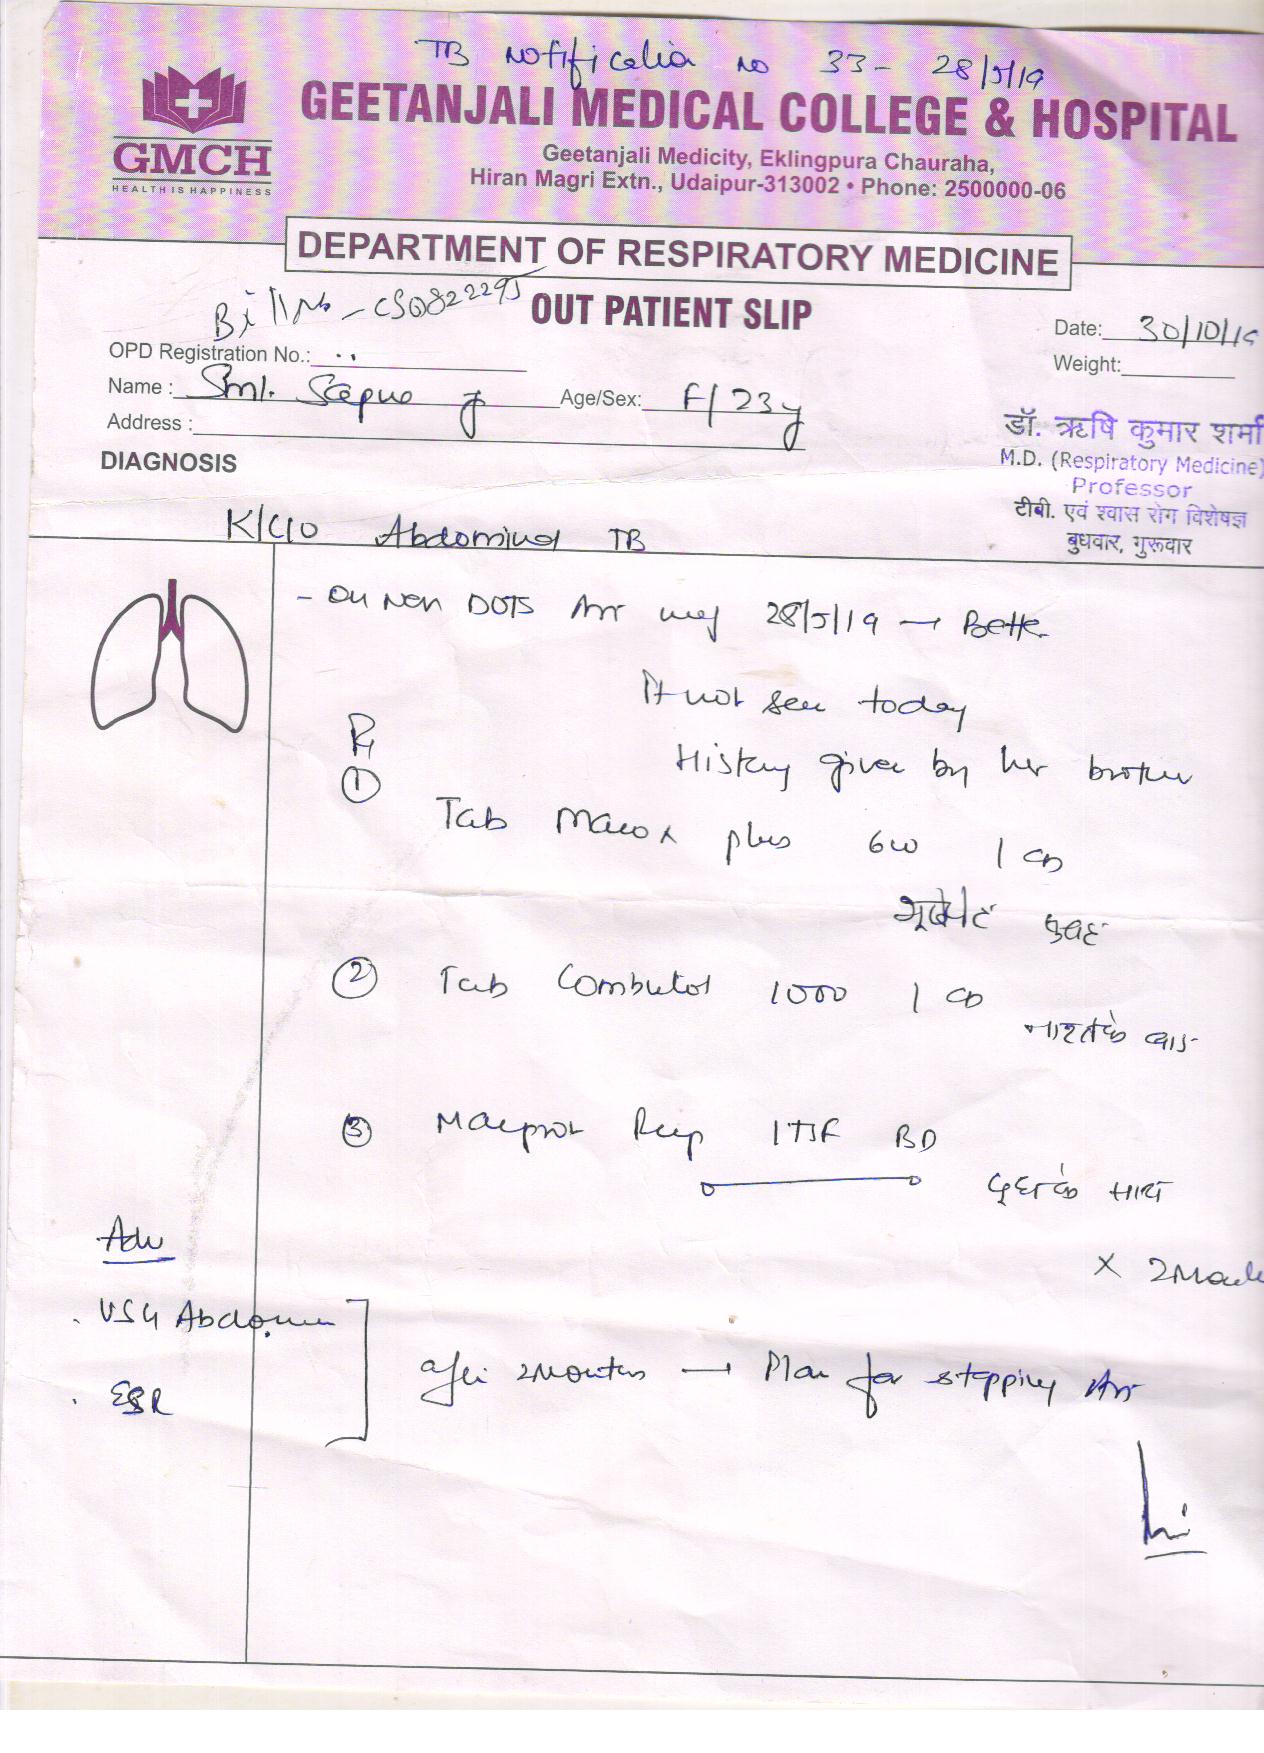 TB Notification no 33- 28/5/19
GEETANJALI MEDICAL COLLEGE & HOSPITAL
GMCH
HEALTH IS HAPPINESS
Geetanjali Medicity, Eklingpura Chauraha,
Hiran Magri Extn., Udaipur-313002 • Phone: 2500000-06
DEPARTMENT OF RESPIRATORY MEDICINE
Bill No - CSO822295
OUT PATIENT SLIP
Date: 30/10/19
OPD Registration No.:
Weight:
Name : Smt.
Age/Sex: F/23y
Address :
डॉ. ऋषि कुमार शर्मा
M.D. (Respiratory Medicine)
Professor
टीबी. एवं श्वास रोग विशेषज्ञ
बुधवार, गुरूवार
DIAGNOSIS
K/C/O Abdominal TB
- On Non DOTS ATT 28/5/19 → Better
Pt not seen today
Rx
History given by her brother
① Tab Macox plus 600 1 OD
भूखेपेट सुबह
② Tab Combutol 1000 1 OD
नाश्तेके बाद
③ Macprot Resp 1TSF BD
दूधके साथ
x 2 Month
Adv
. USG Abdomen
. ESR
after 2 Months → Plan for stopping ATT